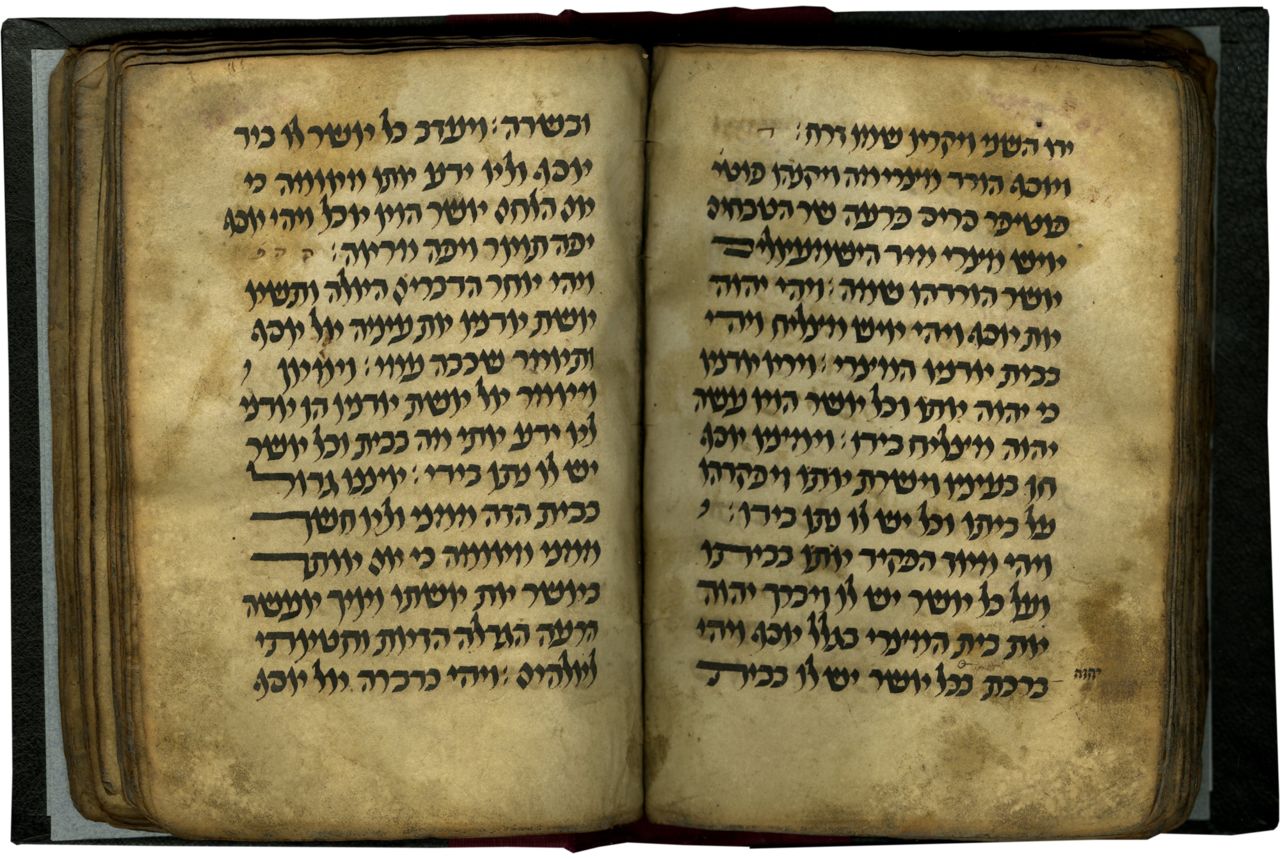 ידו השני ויקרא שמו זרח:
ויוסף הורד מצרימה ויקנהו פוטי
פוטיפר סריס פרעה שר הטבחים
איש מצרי מיד הישמעאלים
אשר הורדהו שמה: ויהי יהוה
את יוסף ויהי איש מצליח ויהי
בבית אדניו המצרי: וירא אדניו
כי יהוה אתו וכל אשר הוא עשה
יהוה מצליח בידו: וימצא יוסף
חן בעיניו וישרת אתו ויפקדהו
על ביתו וכל יש לו נתן בידו:
ויהי מאז הפקיד אתו בביתו
ועל כל אשר יש לו ויברך יהוה
את בית המצרי בגלל יוסף ויהי
ברכת בכל אשר יש לו בבית
יהוה
ובשדה: ויעזב כל אשר לו ביד
יוסף ולא ידע אתו מאומה כי
אם הלחם אשר הוא אוכל ויהי יוסף
יפה תואר ויפה מראה:
ויהי אחר הדברים האלה ותשא
אשת אדניו את עיניה אל יוסף
ותאמר שכבה עמי: וימאן
ויאמר אל אשת אדניו הן אדני
לא ידע אתי מה בבית וכל אשר
יש לו נתן בידי: איננו גדול
בבית הזה ממני ולא חשך
ממני מאומה כי אם אותך
באשר את אשתו ואיך אעשה
הרעה הגדלה הזאת וחטאתי
לאלהים: ויהי כדברה אל יוסף